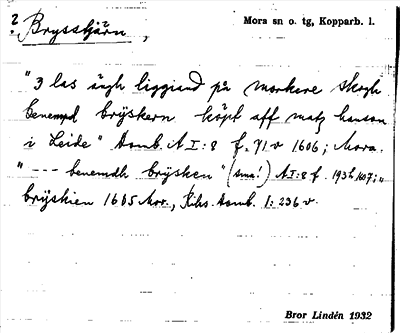 ? Brysstjärn,
Mora sn o. tg, Kopparb. l.
"3 las ängh liggiand på morkere skogh
benempd brÿskern köpt aff matz hanson
i Leide" Domb. A I:8 f. 71 v 1606; Mora.
"--- benemdh brÿsken" (sma!) A I:8 f. 193 1607; "
brÿskien 1605 Mor., Kihs. Domb. 1:236 v.
Bror Lindén 1932